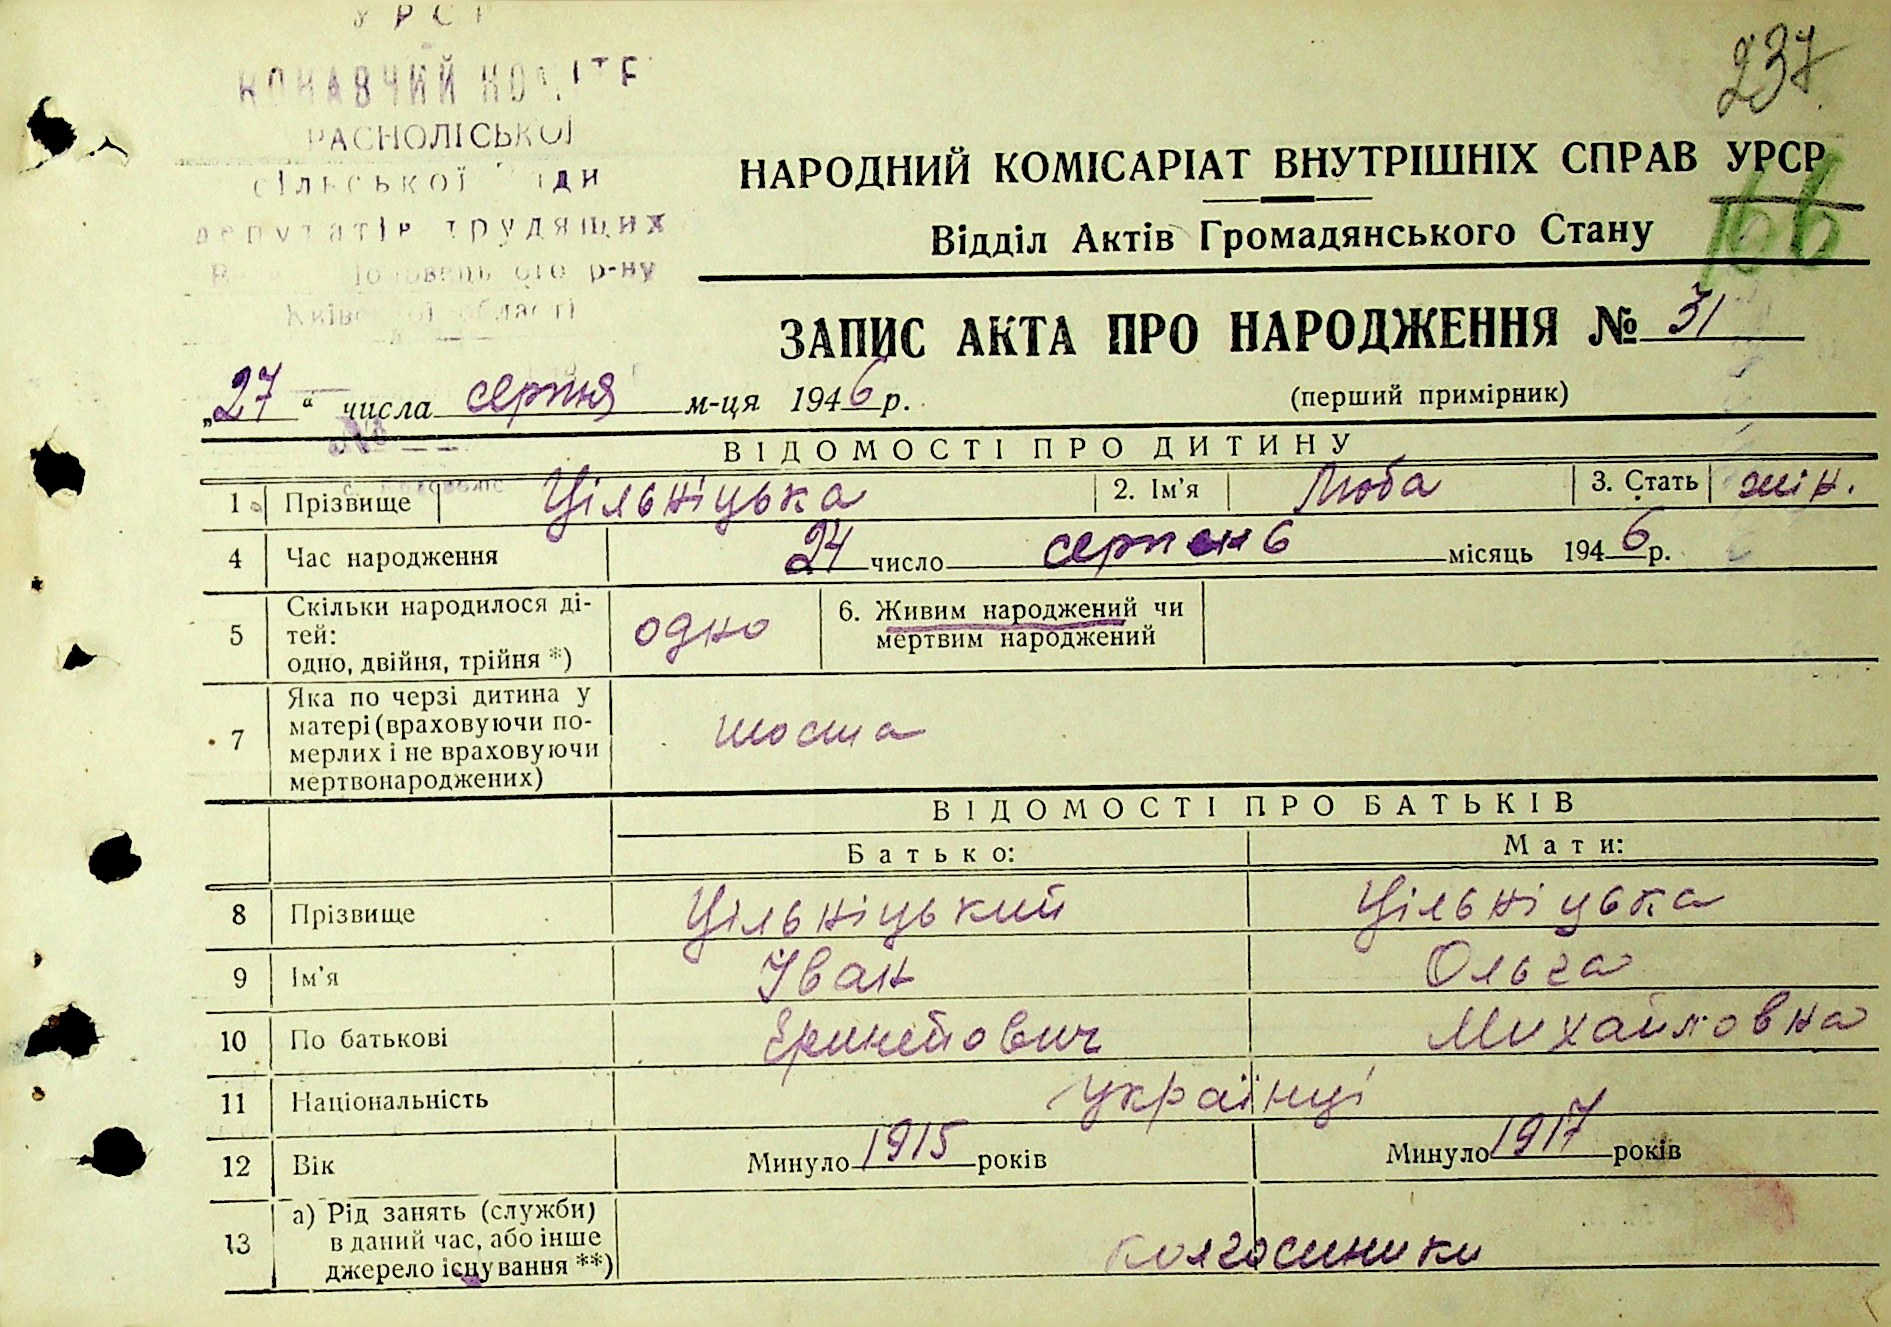 УРСР
КОНАВЧИЙ КОМІТЕ
РАСНОЛІСЬКОЇ
сільської Ради
депутатів трудящих
р-ну
Київської області
237
НАРОДНИЙ КОМІСАРІАТ ВНУТРІШНІХ СПРАВ УРСР
166
Відділ Актів Громадянського Стану
ЗАПИС АКТА ПРО НАРОДЖЕННЯ № 31
„27“ числа серпня м-ця 1946 р.
(перший примірник)
№
ВІДОМОСТІ ПРО ДИТИНУ
1 Прізвище Цільніцька 2. Ім'я Люба 3. Стать жін.
4 Час народження 24 число серпень місяць 1946 р.
5 Скільки народилося ді-
тей:
одно, двійня, трійня *) одно 6. Живим народжений чи
мертвим народжений
7 Яка по черзі дитина у
матері (враховуючи по-
мерлих і не враховуючи
мертвонароджених) шоста
ВІДОМОСТІ ПРО БАТЬКІВ
Батько: Мати:
8 Прізвище Цільніцький Цільніцька
9 Ім'я Іван Ольга
10 По батькові Михайловна
11 Національність українці
12 Вік Минуло 1915 років Минуло 1917 років
13 а) Рід занять (служби)
в даний час, або інше
джерело існування **) колгосиники